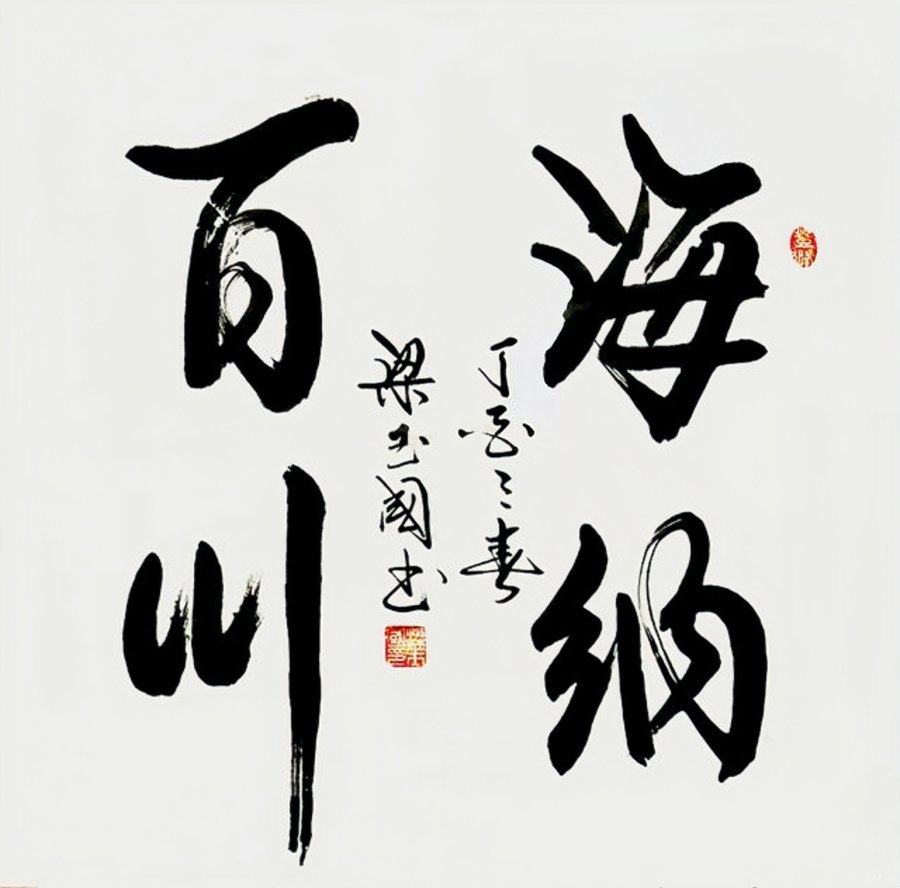 海纳
百川
丁酉之春
梁玉国书